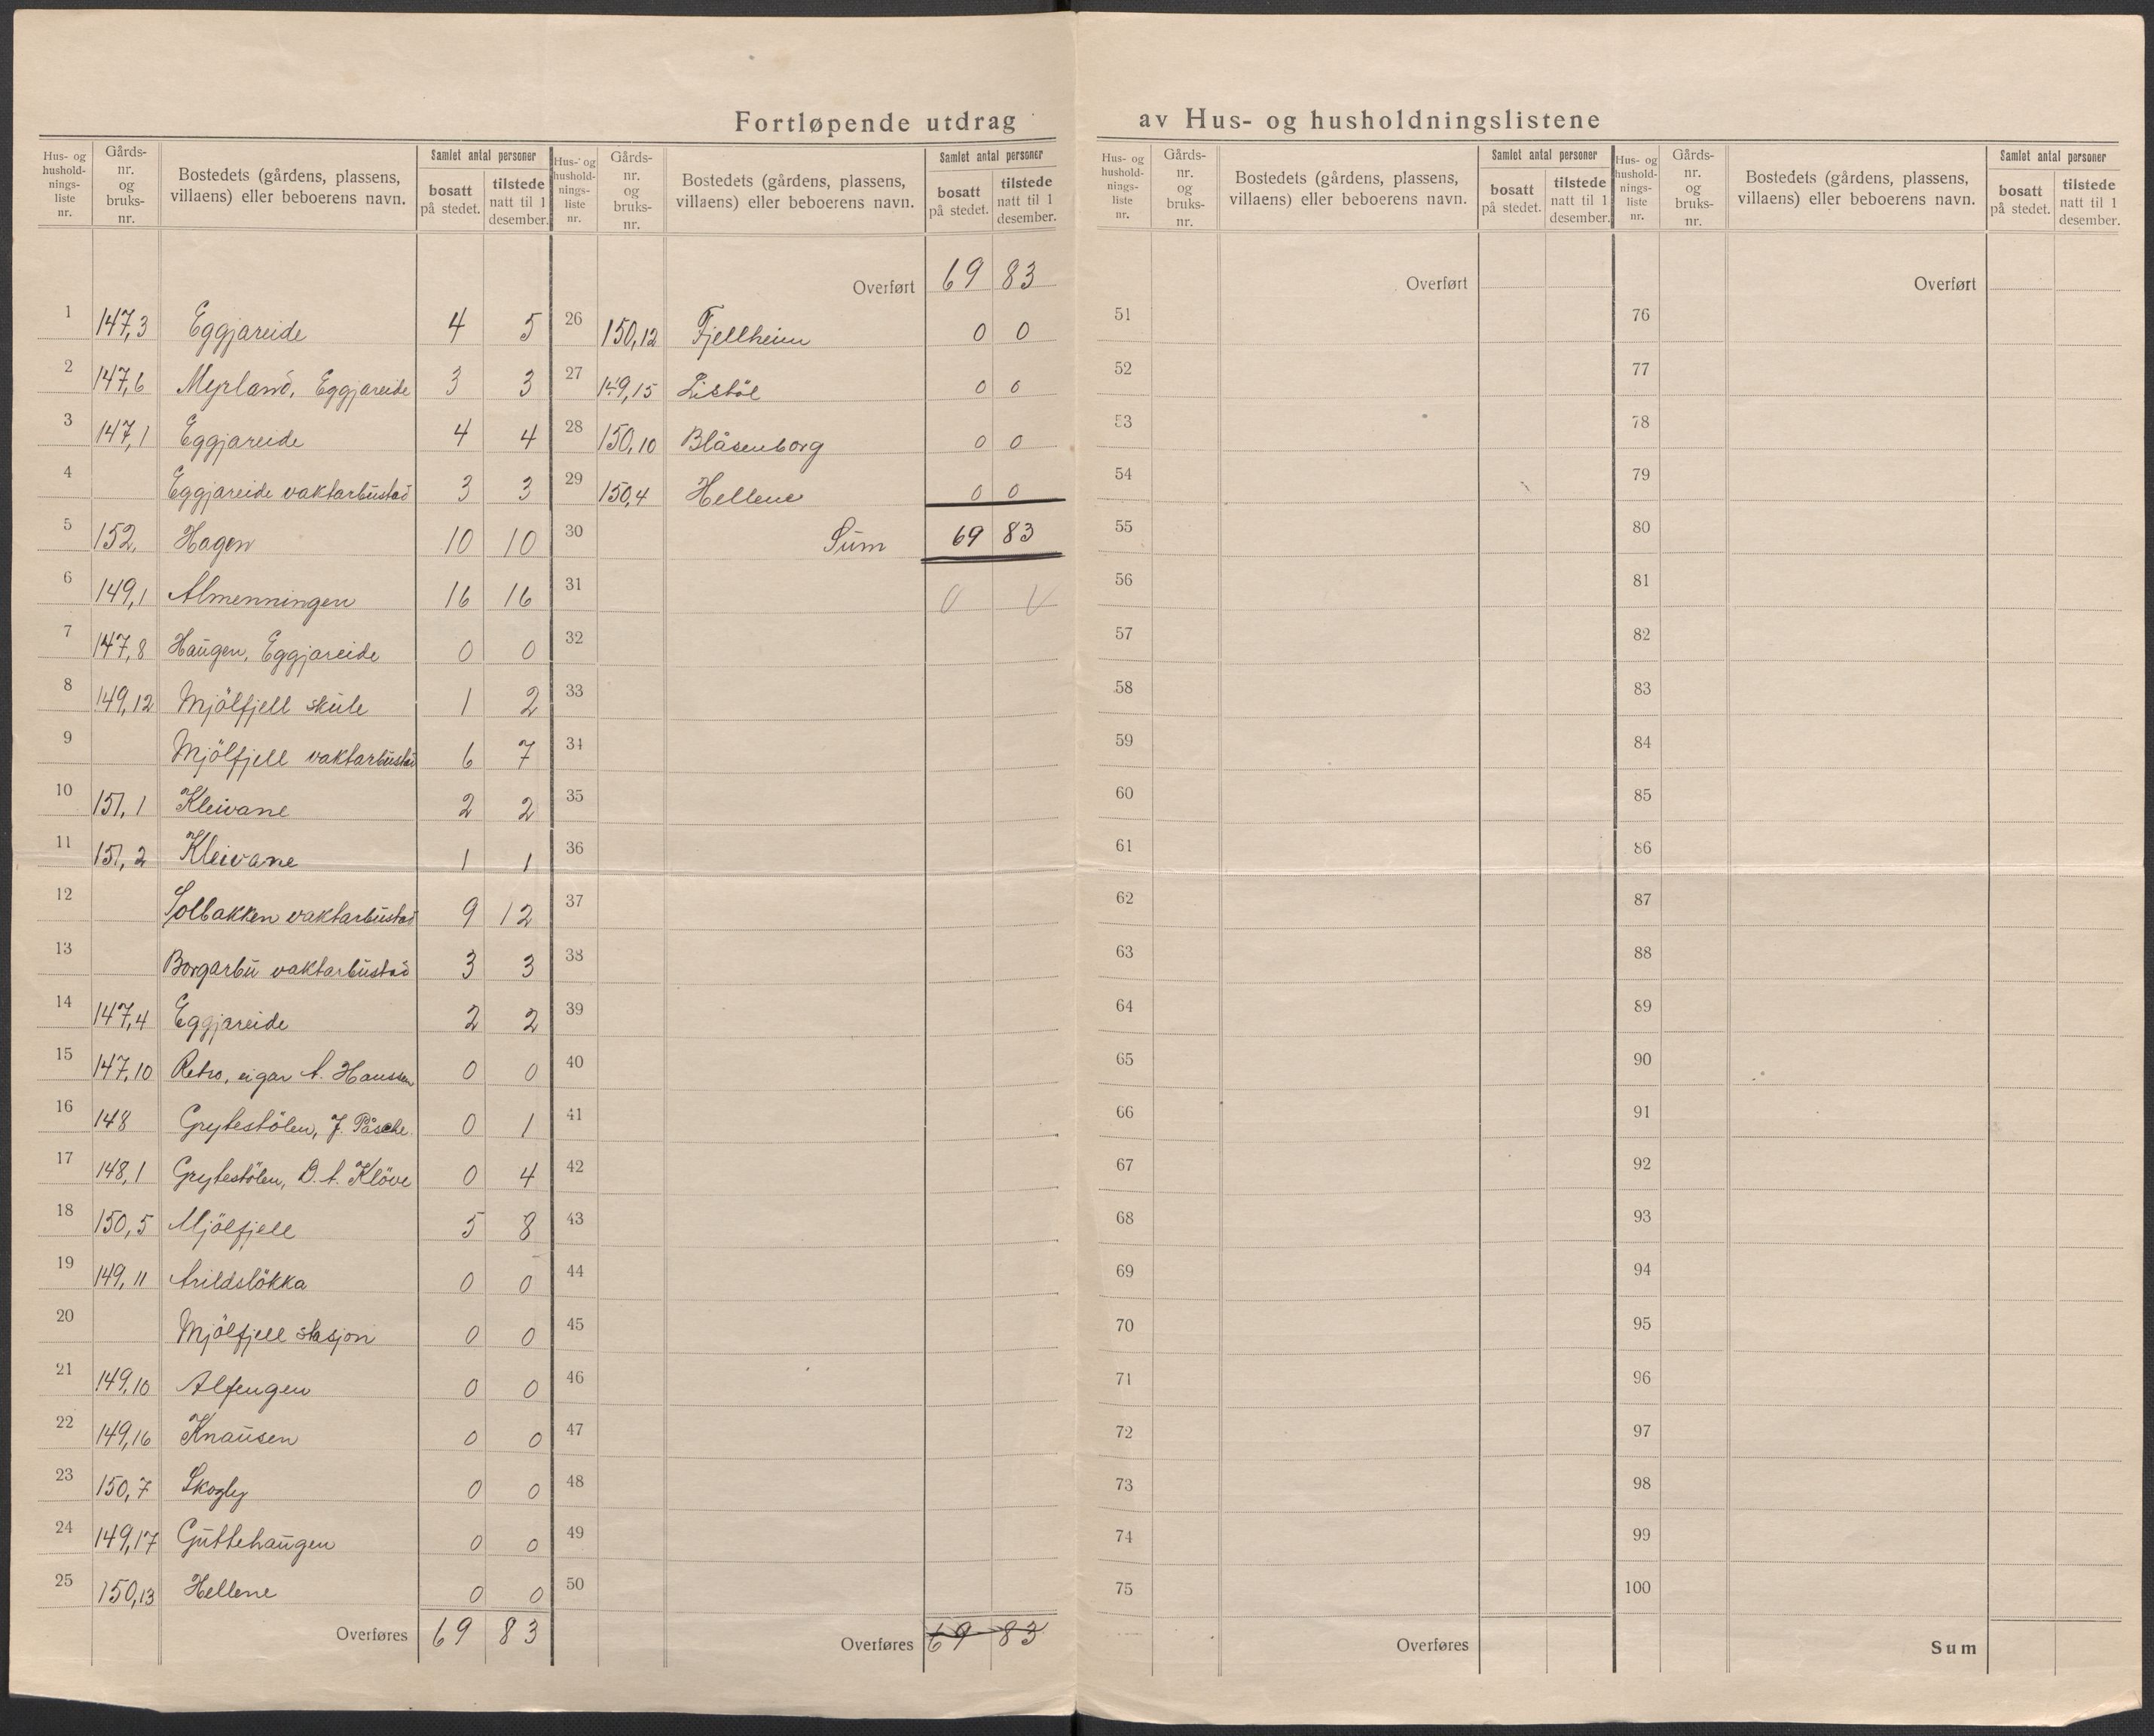 Fortløpende utdrag av Hus- og husholdningslistene
Hus- og hushold-nings-liste nr. Gårds-nr. og bruks-nr. Bostedets (gårdens, plassens, villaens) eller beboerens navn. Samlet antal personer bosatt på stedet. tilstede natt til 1 desember.
1 147,3 Eggjareide 4 5
2 147,6 Myrland, Eggjareide 3 3
3 147,1 Eggjareide 4 4
4 Eggjareide vaktarbustad 3 3
5 152, Hagen 10 10
6 149,1 Almenningen 16 16
7 147,8 Haugen, Eggjareide 0 0
8 149,12 Mjölfjell skule 1 2
9 Mjölfjell vaktarbustad 6 7
10 151,1 Kleivane 2 2
11 151,2 Kleivane 1 1
12 Solbakken vaktarbustad 9 12
13 Borgarbu vaktarbustad 3 3
14 147,4 Eggjareide 2 2
15 147,10 Retro, eigar A. Hanssen 0 0
16 148 Grytestölen, J. Påsche 0 1
17 148,1 Grytestölen, O. A. Klöve 0 4
18 150,5 Mjölfjell 5 8
19 149,11 Arildslökka 0 0
20 Mjölfjell stasjon 0 0
21 149,10 Alfengen 0 0
22 149,16 Knausen 0 0
23 150,7 Skogly 0 0
24 149,17 Guttehaugen 0 0
25 150,13 Hellene 0 0
Overføres 69 83
Hus- og hushold-nings-liste nr. Gårds-nr. og bruks-nr. Bostedets (gårdens, plassens, villaens) eller beboerens navn. Samlet antal personer bosatt på stedet. tilstede natt til 1 desember.
Overført 69 83
26 150,12 Fjellheim 0 0
27 149,15 Listöl 0 0
28 150,10 Blåsenborg 0 0
29 150,4 Hellene 0 0
30 Sum 69 83
31
32
33
34
35
36
37
38
39
40
41
42
43
44
45
46
47
48
49
50
Overføres 69 83
Hus- og hushold-nings-liste nr. Gårds-nr. og bruks-nr. Bostedets (gårdens, plassens, villaens) eller beboerens navn. Samlet antal personer bosatt på stedet. tilstede natt til 1 desember.
Overført
51
52
53
54
55
56
57
58
59
60
61
62
63
64
65
66
67
68
69
70
71
72
73
74
75
Overføres
Hus- og hushold-nings-liste nr. Gårds-nr. og bruks-nr. Bostedets (gårdens, plassens, villaens) eller beboerens navn. Samlet antal personer bosatt på stedet. tilstede natt til 1 desember.
Overført
76
77
78
79
80
81
82
83
84
85
86
87
88
89
90
91
92
93
94
95
96
97
98
99
100
Sum